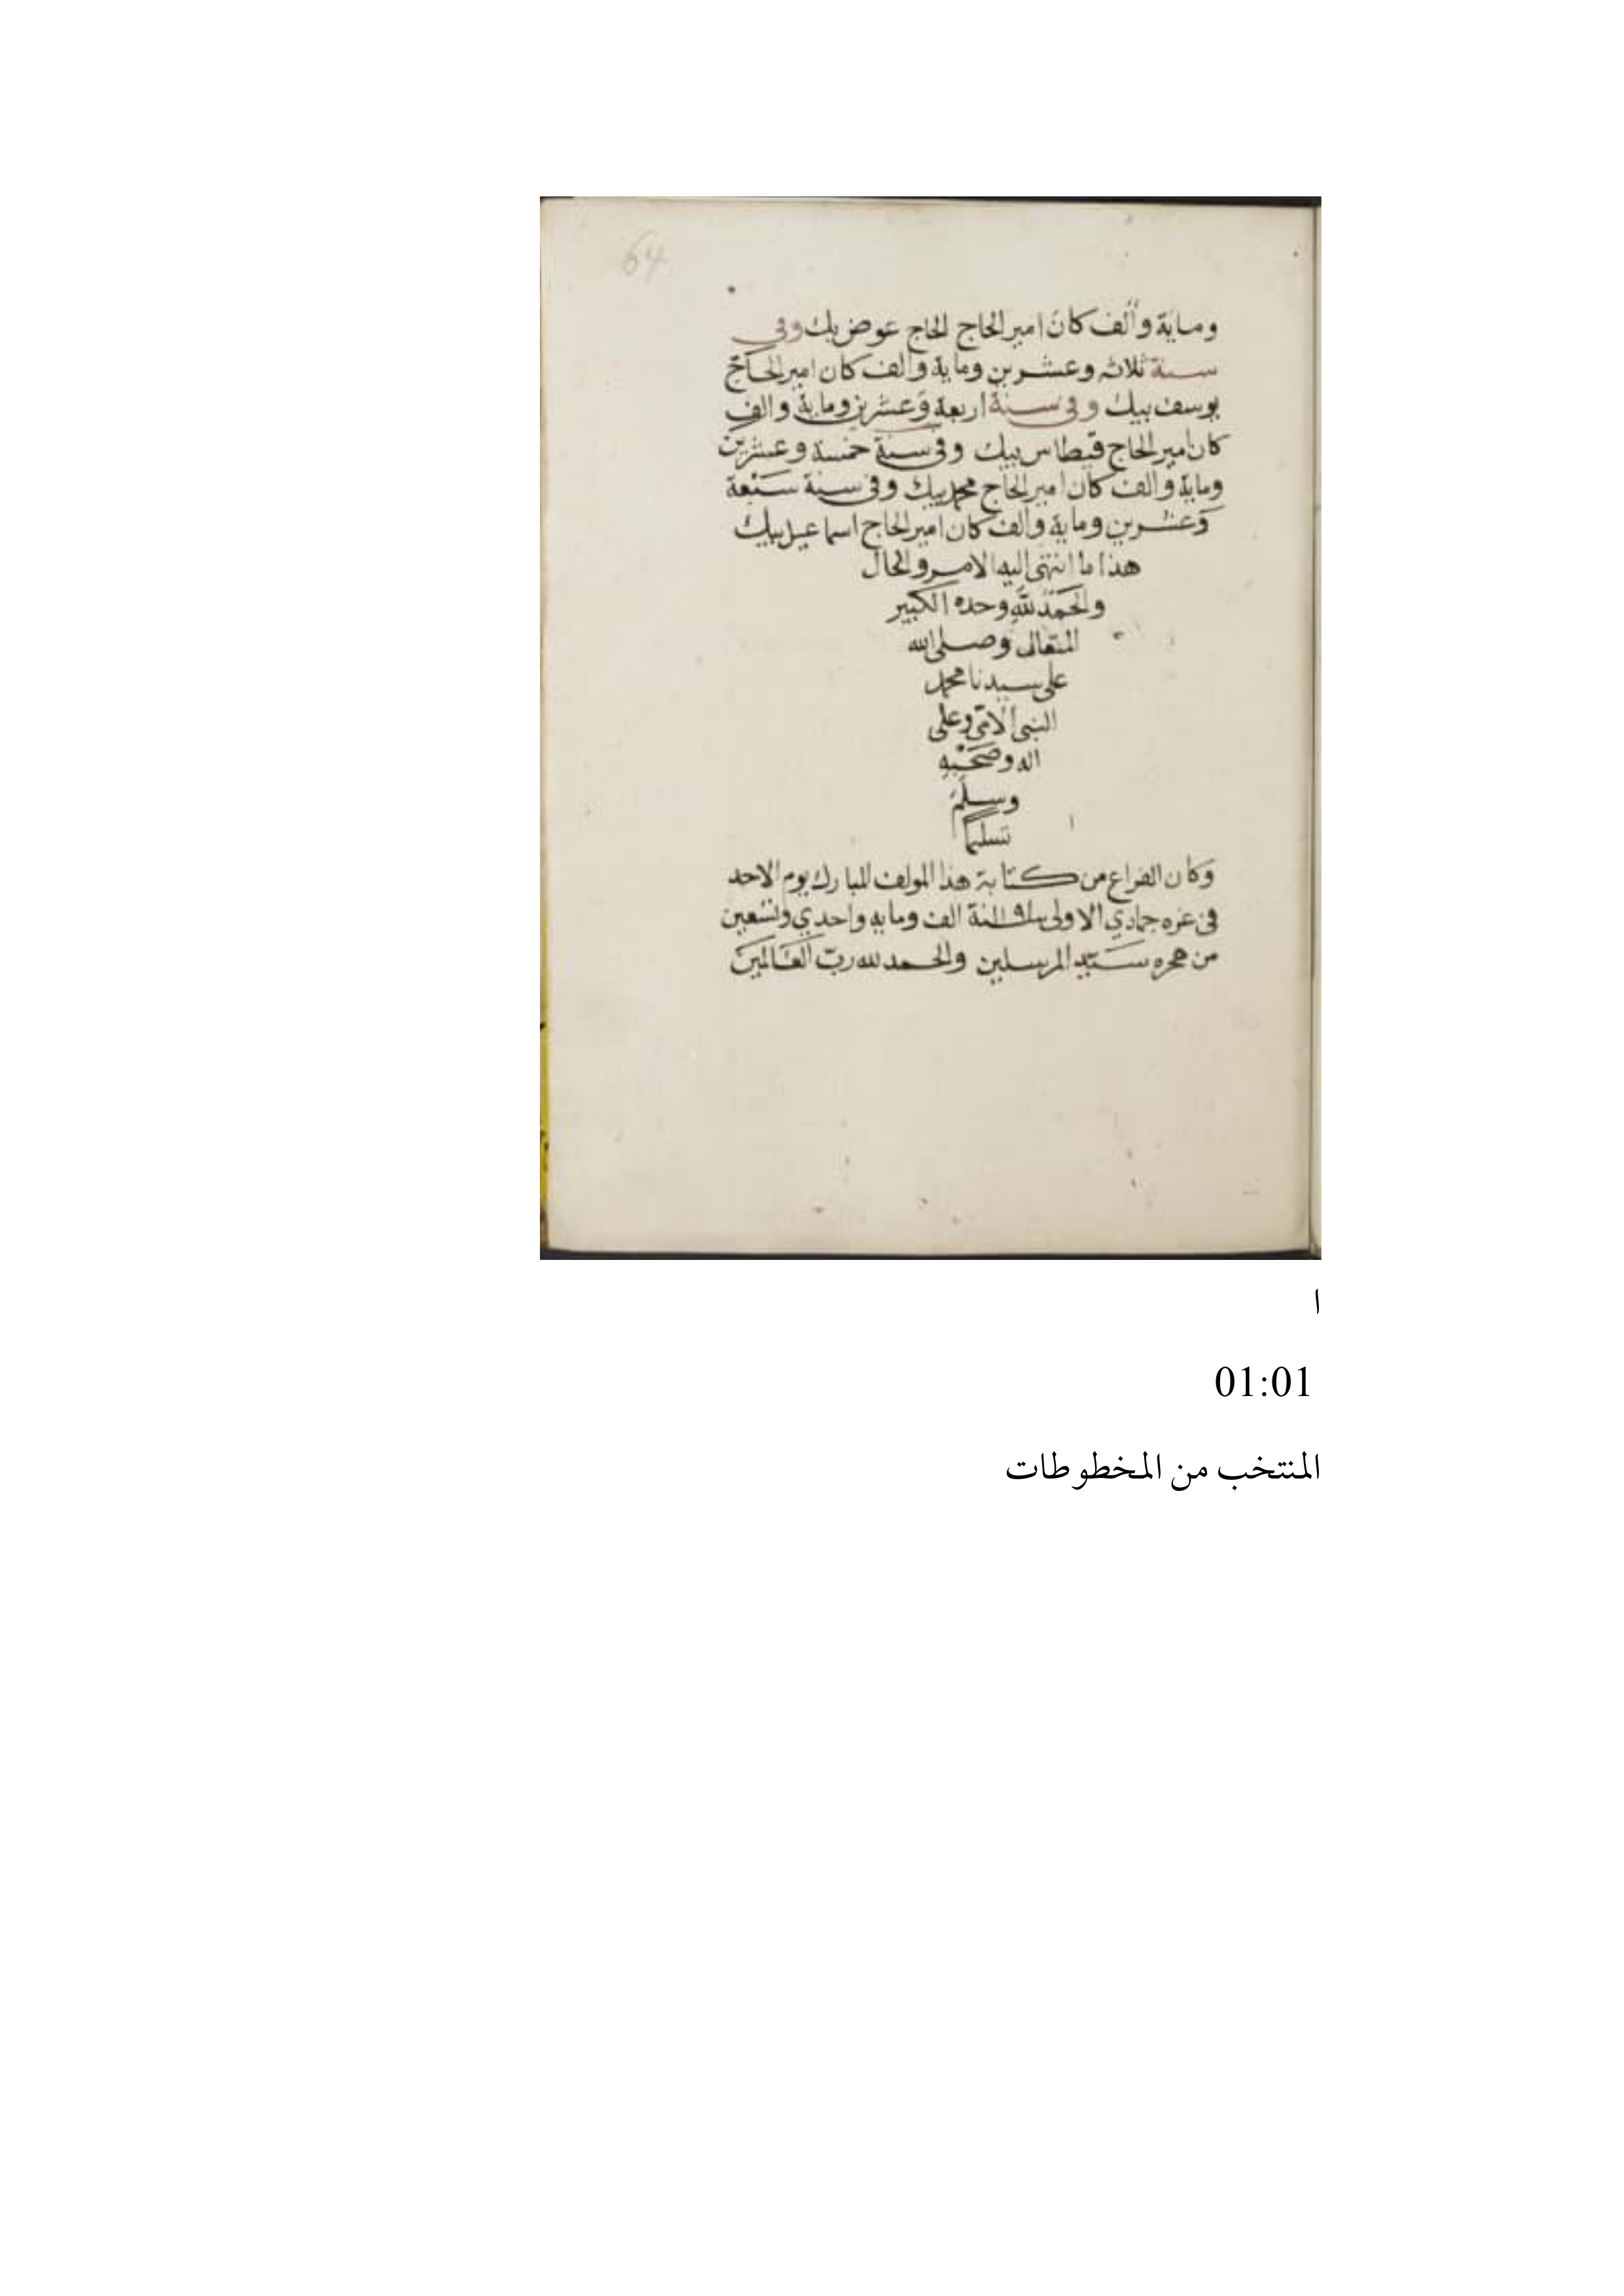 64
وماية وألف كان امير الحاج الحاج عوض بك وفى
سنة ثلاثه وعشرين وماية والف كان امير الحاج
يوسف بيك وفى سنة اربعة وعشرين وماية والف
كان امير الحاج قيطاس بيك وفى سنة خمسة وعشرين
وماية والف كان امير الحاج محمد بيك وفى سنة سبعة
وعشرين وماية والف كان امير الحاج اسماعيل بيك
هذا ما انتهى اليه الامر والحال
والحمد لله وحده الكبير
المتعال وصلى الله
على سيدنا محمد
النبى الامى وعلى
اله وصحبه
وسلم
تسليما
وكان الفراغ من كتابة هذا المولف المبارك يوم الاحد
فى غره جمادي الاولى سنة الف ومايه واحدي وتسعين
من هجره سيد المرسلين والحمد لله رب العالمين
ا
01:01
المنتخب من المخطوطات